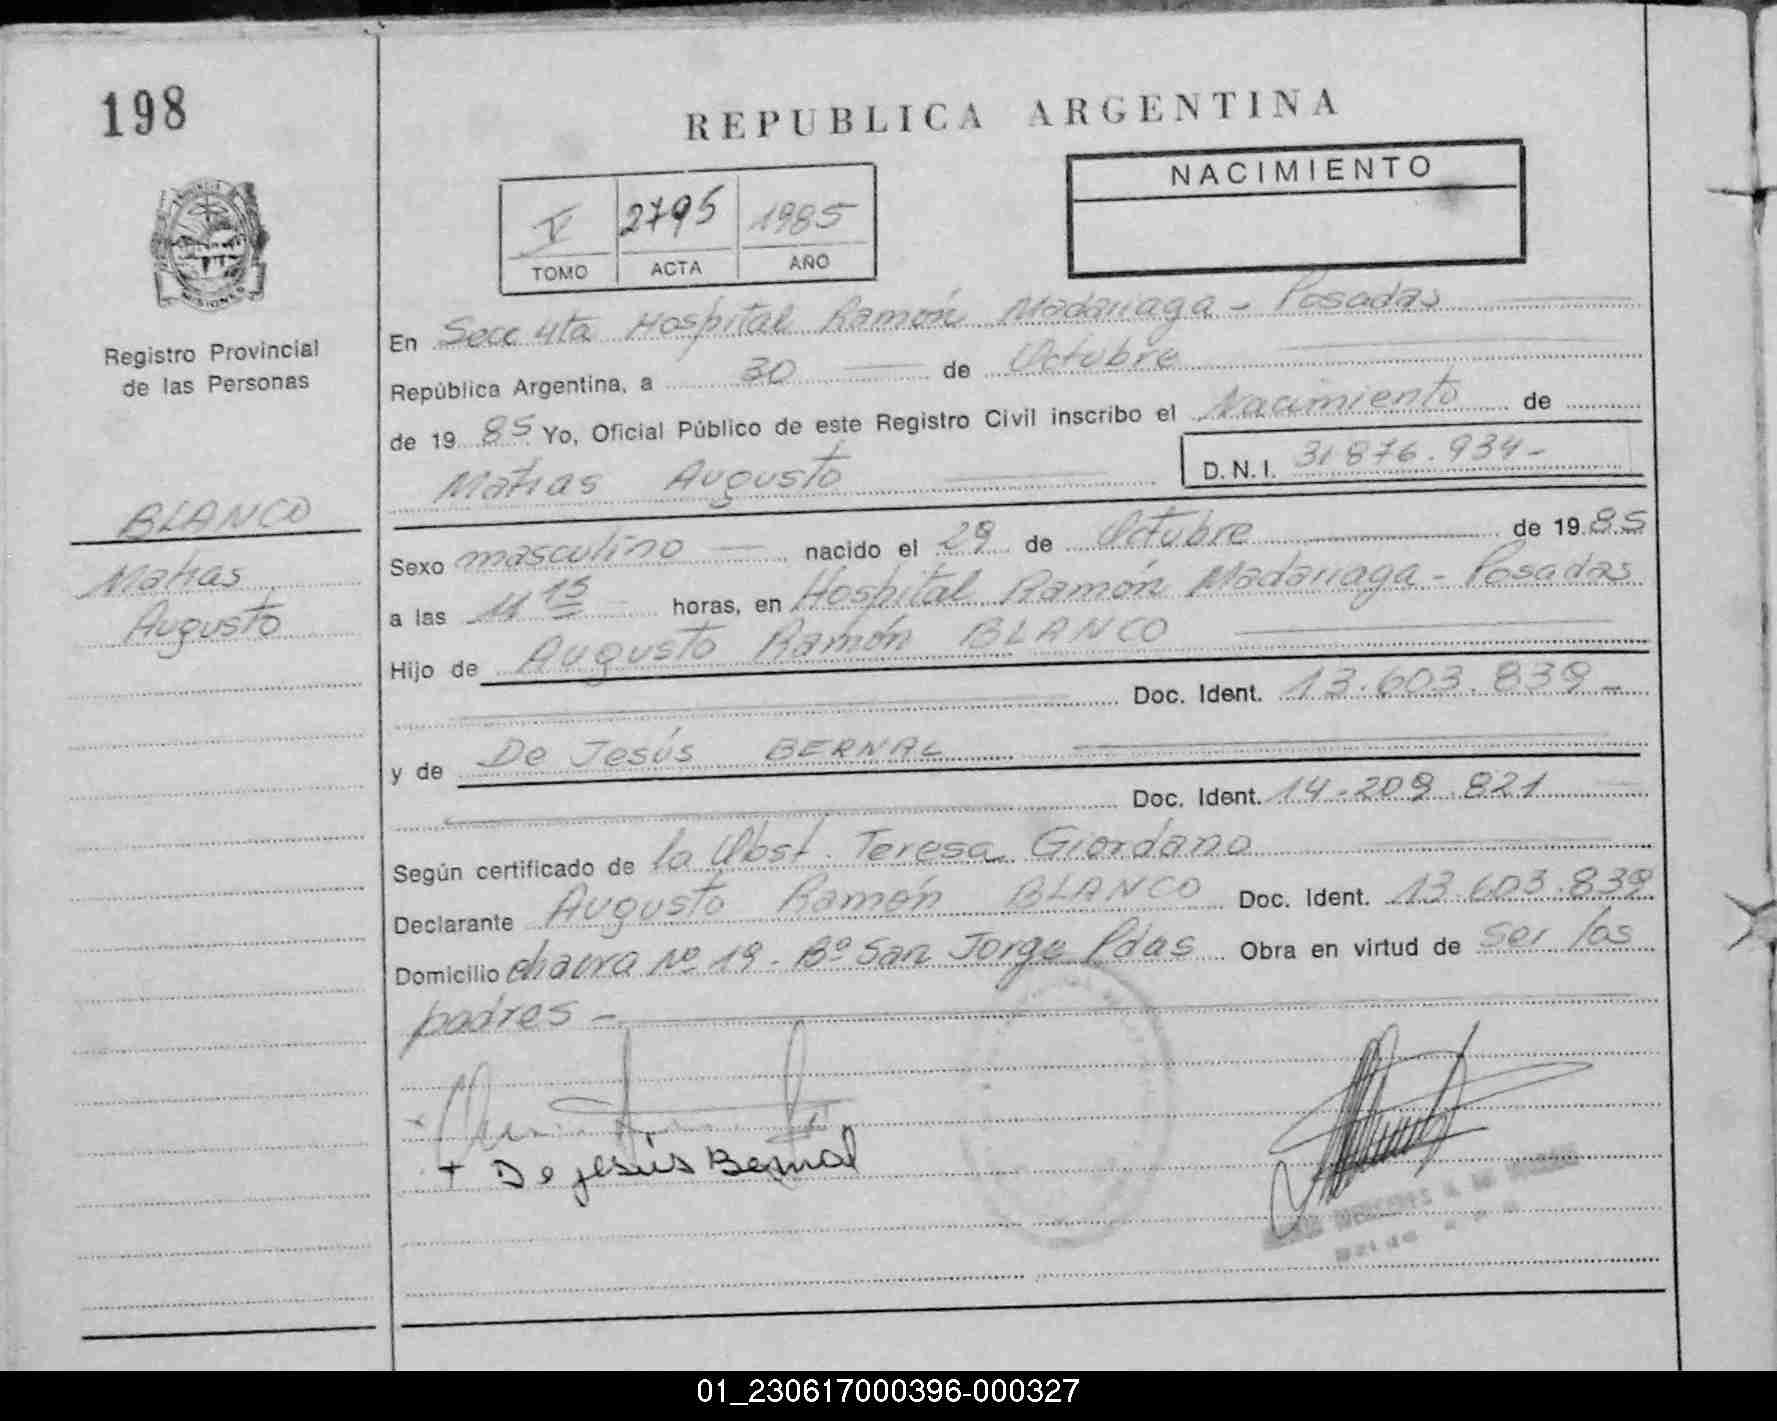 198
REPUBLICA ARGENTINA
NACIMIENTO
V 2795 1985
TOMO ACTA AÑO
MISIONES
Registro Provincial
de las Personas
En Secc 4ta Hospital Ramón Madariaga - Posadas
República Argentina, a 30 de Octubre
de 19 85 Yo, Oficial Público de este Registro Civil inscribo el Nacimiento de
Matias Augusto D.N.I. 31.876.934-
BLANCO
Matias
Augusto
Sexo masculino nacido el 29 de Octubre de 19 85
a las 11 15 horas, en Hospital Ramón Madariaga - Posadas
Hijo de Augusto Ramón BLANCO
Doc. Ident. 13.603.839-
y de De Jesús BERNAL
Doc. Ident. 14.209.821
Según certificado de la Obst. Teresa Giordano
Declarante Augusto Ramón BLANCO Doc. Ident. 13.603.839
Domicilio chacra Nº 19 - Bº San Jorge Pdas Obra en virtud de ser los
padres -
+ De jesús Bernal
01_230617000396-000327